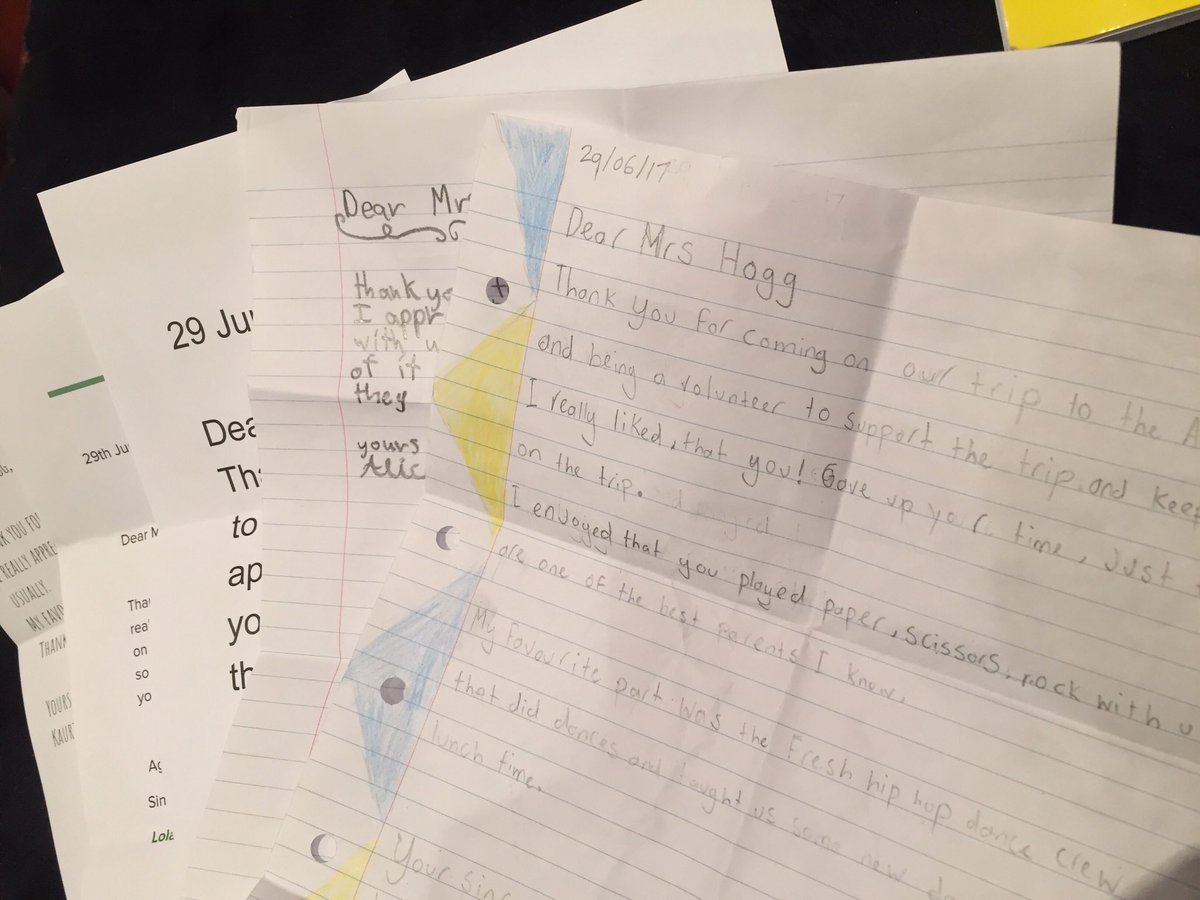 29/06/17
Dear Mrs Hogg
Thank you for coming on our trip to the A
and being a volunteer to support the trip and keep
I really liked, that you! Gave up your time, just
on the trip.
I enjoyed that you played paper, scissors, rock with u
are one of the best parents I know.
My favourite part was the Fresh hip hop dance crew
that did dances and taught us some new da
lunch time.
Your sinc
Dear Mr
thank yo
I appr
with u
of it
they
yours
Alic
29 Ju
Dea
Tha
to
ap
yo
th
29th Ju
Dear M
Tha
rea
on
so
yo
Ag
Sin
Lola
K YOU FO
REALLY APPRE
USUALLY.
MY FAVO
THANK
YOURS
KAUR